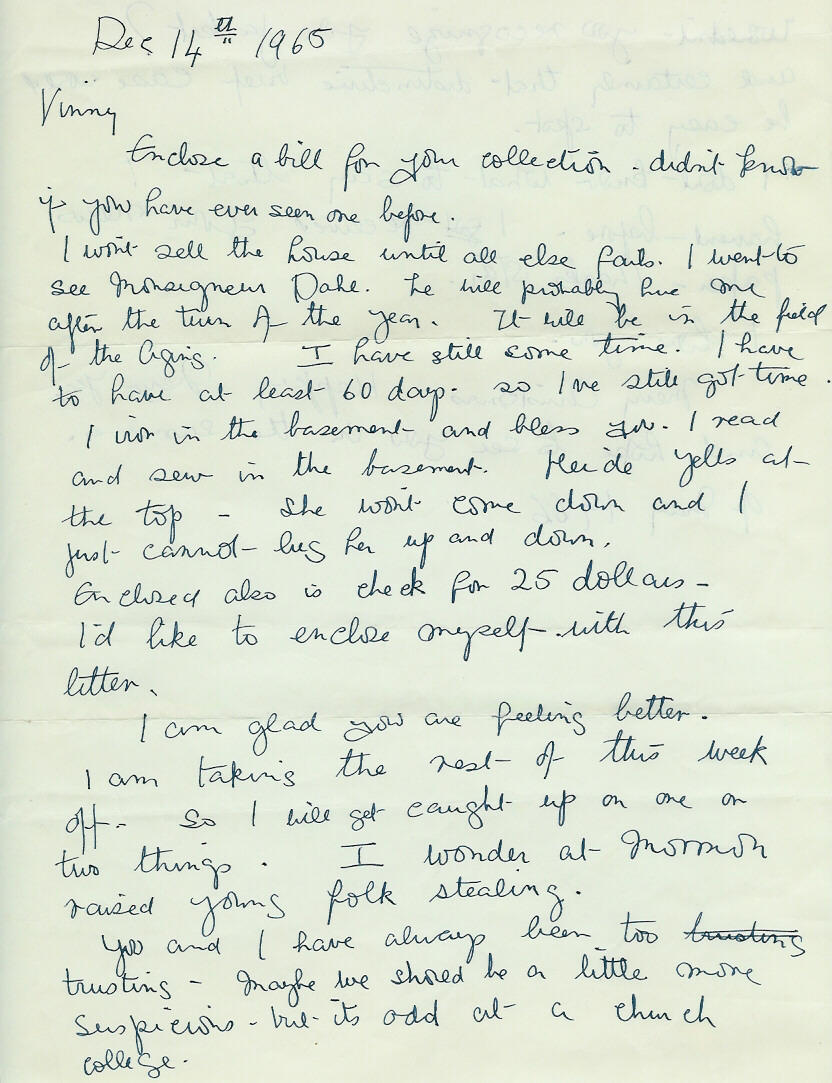 Dec 14th 1965
Vinny
Enclose a bill for your collection - didn't know
if you have ever seen one before.
I won't sell the house until all else fails. I went to
see Monsigneur Dahl. he will probably hire me
after the turn of the year. It will be in the field
of the Aging. I have still some time. I have
to have at least 60 days. so I've still got time.
I iron in the basement and bless you. I read
and sew in the basement. Heide yells at
the top - she won't come down and I
just cannot lug her up and down.
Enclosed also is check for 25 dollars -
I'd like to enclose myself with this
litter.
I am glad you are feeling better.
I am taking the rest of this week
off. So I will get caught up on one or
two things. I wonder at Mormon
raised young folk stealing.
You and I have always been too trusting
trusting - Maybe we should be a little more
suspicious - but its odd at a church
college.